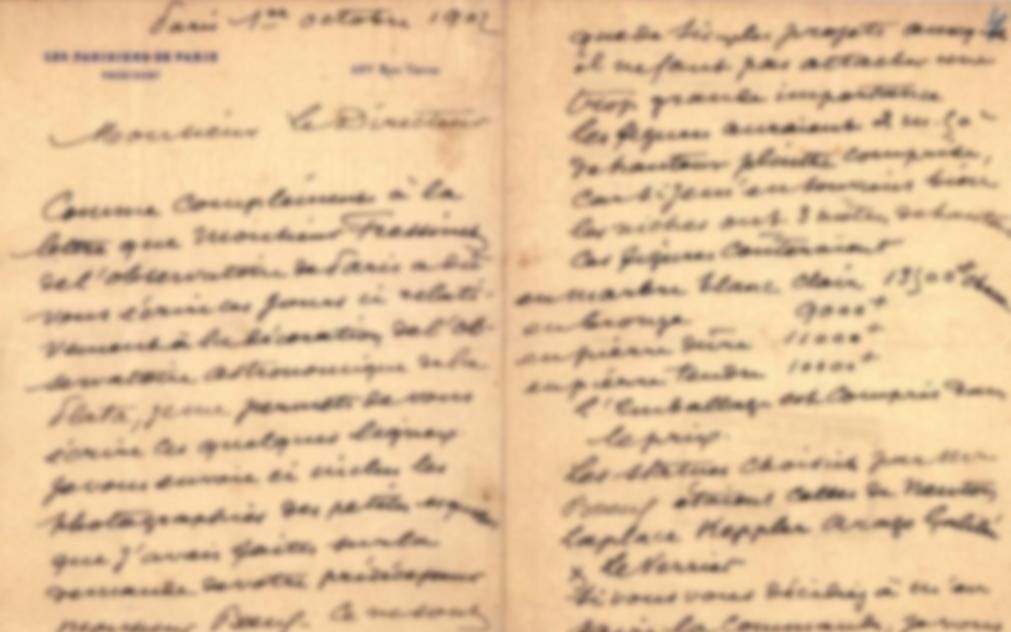 Paris 1er octobre 190
LES PARISIENS DE PARIS
Monsieur Le Directeur
Comme complément à la
lettre que Monsieur
de l'observatoire de Paris a dû
vous écrire ces jours ci relati-
vement à la décoration de l'Ob-
servatoire astronomique de la
Plata, je me permets de vous
écrire ces quelques lignes
je vous envoie ci inclus les
photographies des petites
que j'avais faites sur la
demande de votre prédécesseur
Monsieur Beuf. Ce ne sont
que de simples projets
il ne faut pas attacher une
trop grande importance
les figures auraient 2 m. 50
de hauteur plinthe comprise,
car si je m'en souviens bien
les niches ont 3 mètres de
Ces figures couteraient
en marbre blanc clair
en bronze 9000
en pierre dure 11000
en pierre tendre 10000
l'emballage est compris dans
le prix.
Les statues choisies par Mr
Beuf étaient celles de Newton,
Laplace Keppler Arago Galilée
& Le Verrier
Si vous vous décidiez à m'en
faire la commande, je vous